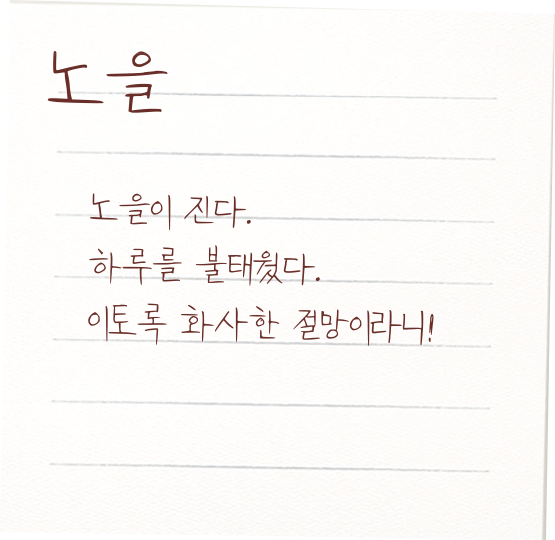 노을
노을이 진다.
하루를 불태웠다.
이토록 화사한 절망이라니!